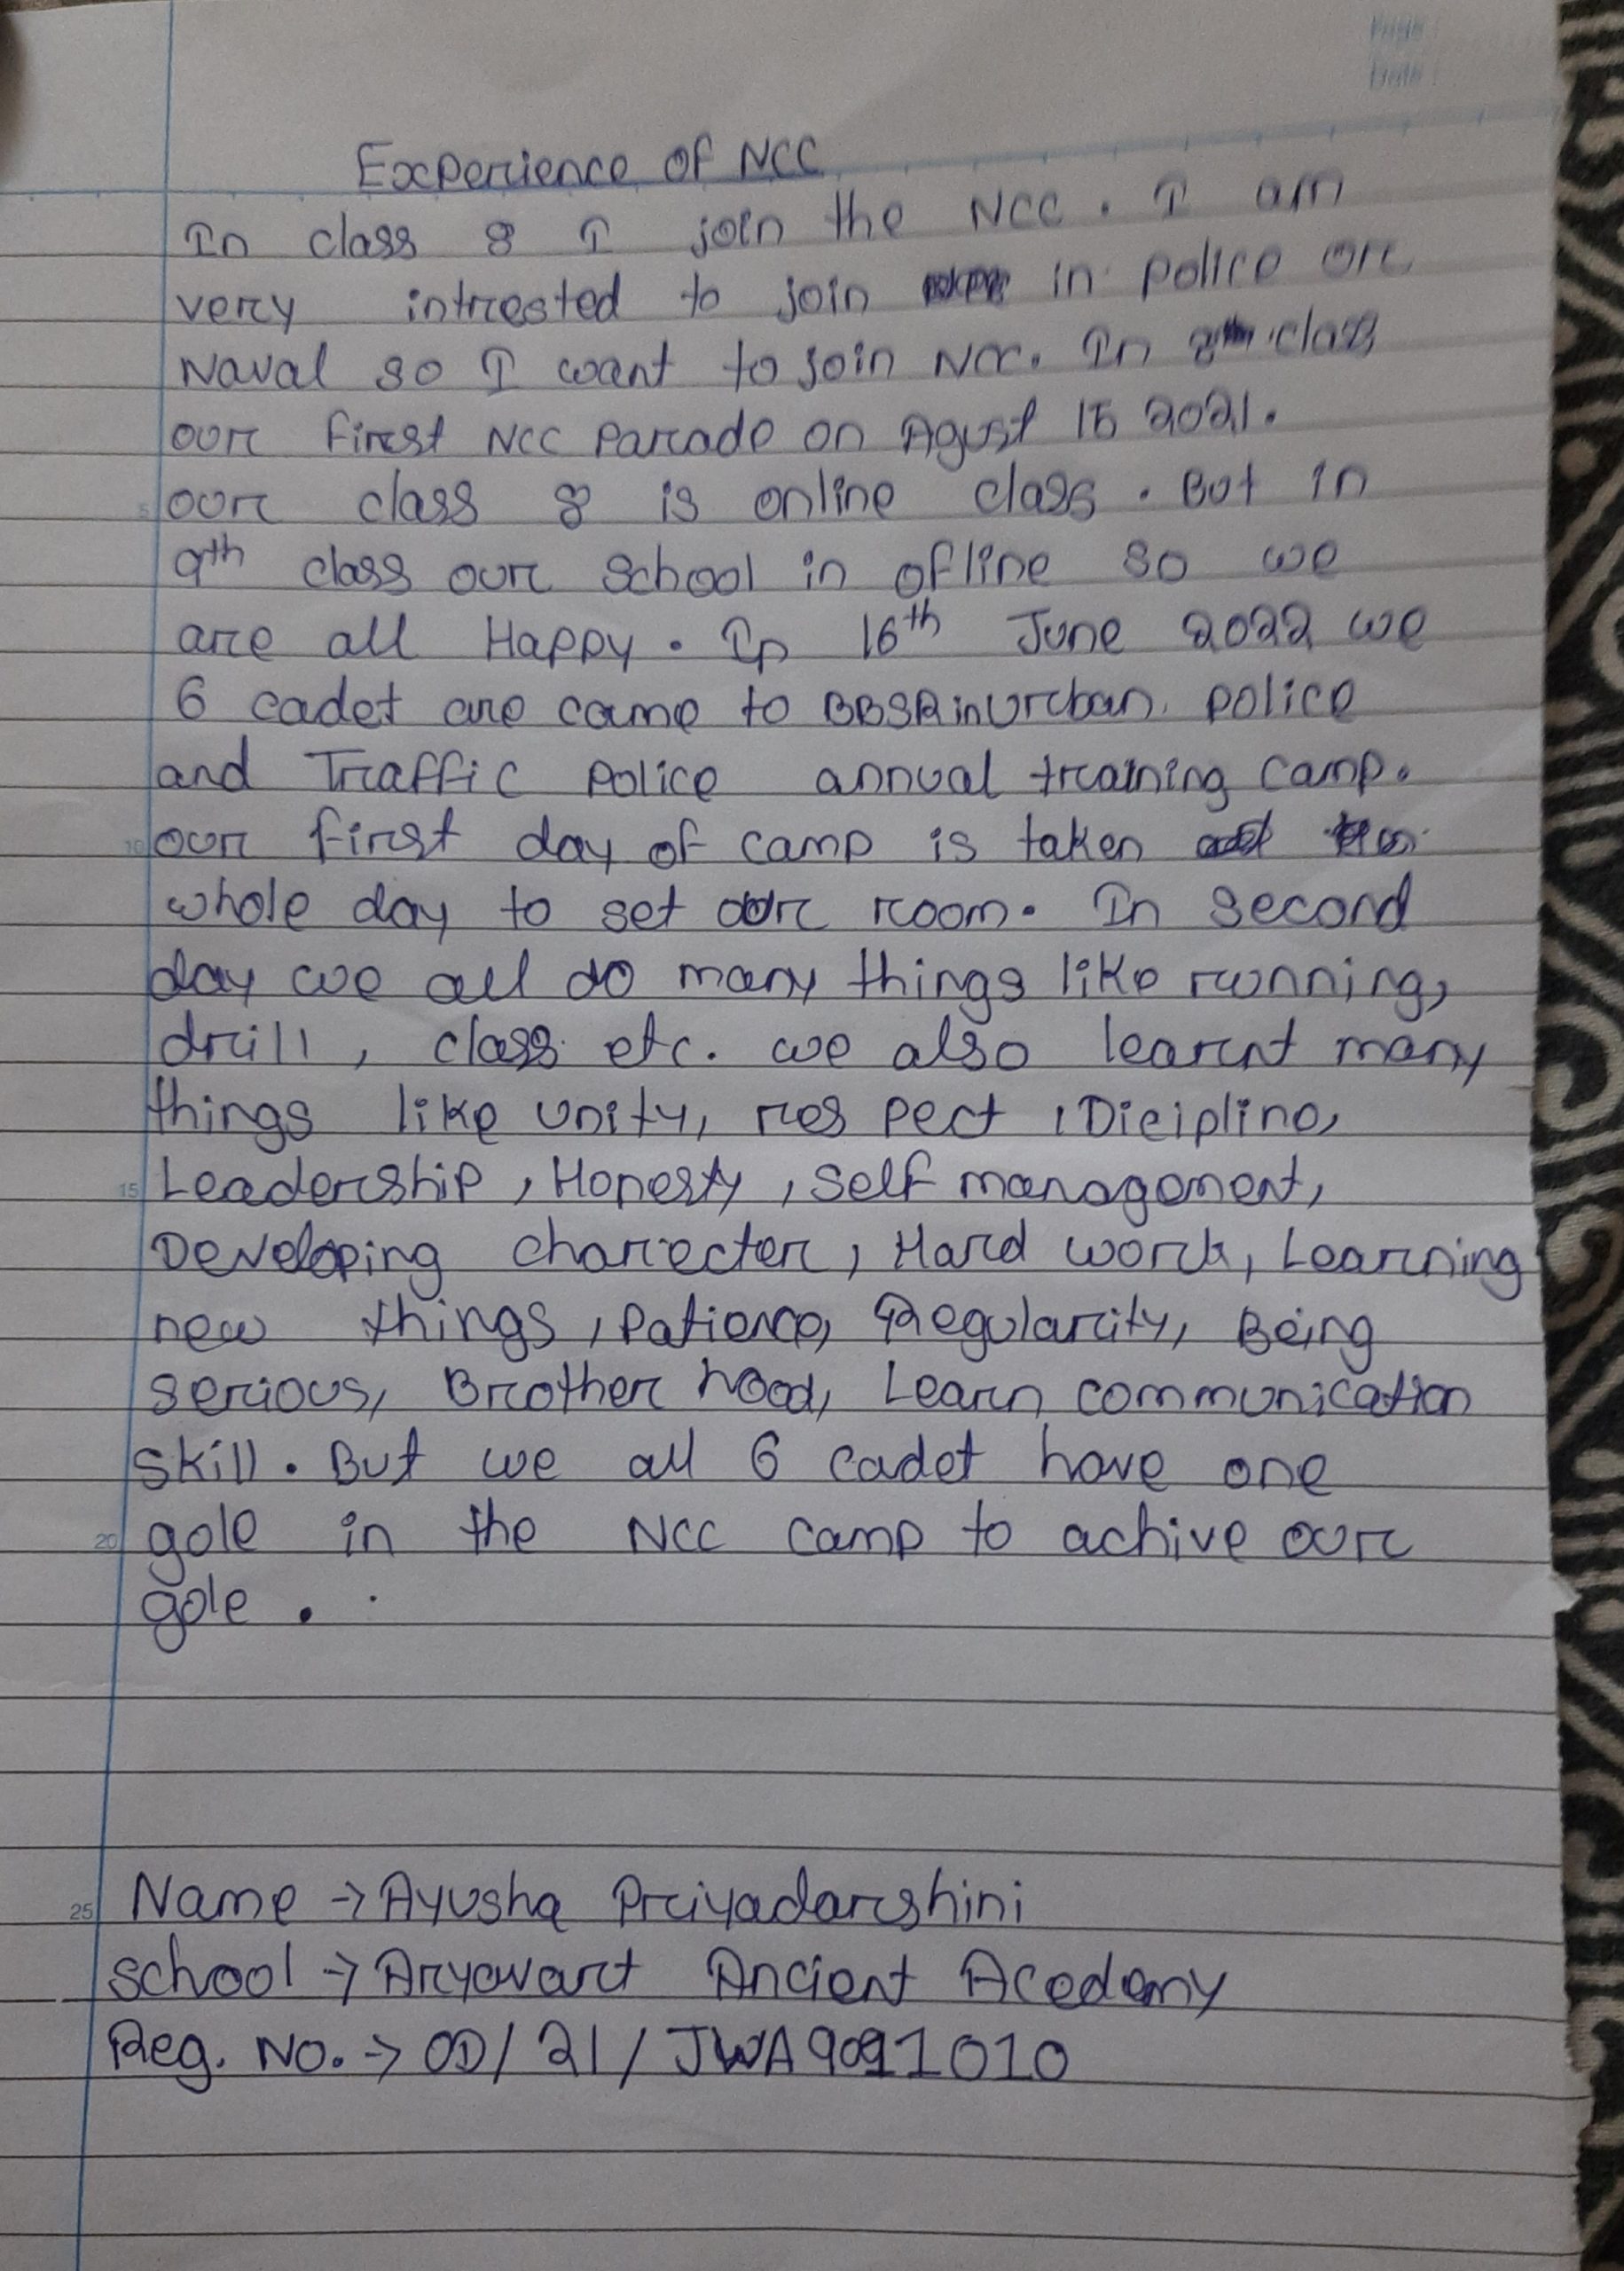 Experience of NCC
In class 8 I join the NCC. I am
very intrested to join in police or
Naval so I want to join NCC. In 8th class
our first NCC Parade on Agust 15 2021.
our class 8 is online class. But in
9th class our school in ofline so we
are all Happy. In 16th June 2022 we
6 cadet are came to BBSR in Urban police
and Traffic Police annual training camp.
our first day of camp is taken
whole day to set our room. In second
day we all do many things like running,
drill, class etc. we also learnt many
things like unity, res pect, Dicipline,
Leadership, Honesty, Self management,
Developing charecter, Hard work, Learning
new things, Patience, Regularity, Being
serious, Brother hood, Learn communication
skill. But we all 6 cadet have one
gole in the NCC camp to achive our
gole.
Name → Ayusha Priyadarshini
school → Aryavart Ancient Acedemy
Reg. No. → OD/21/JWA9091010